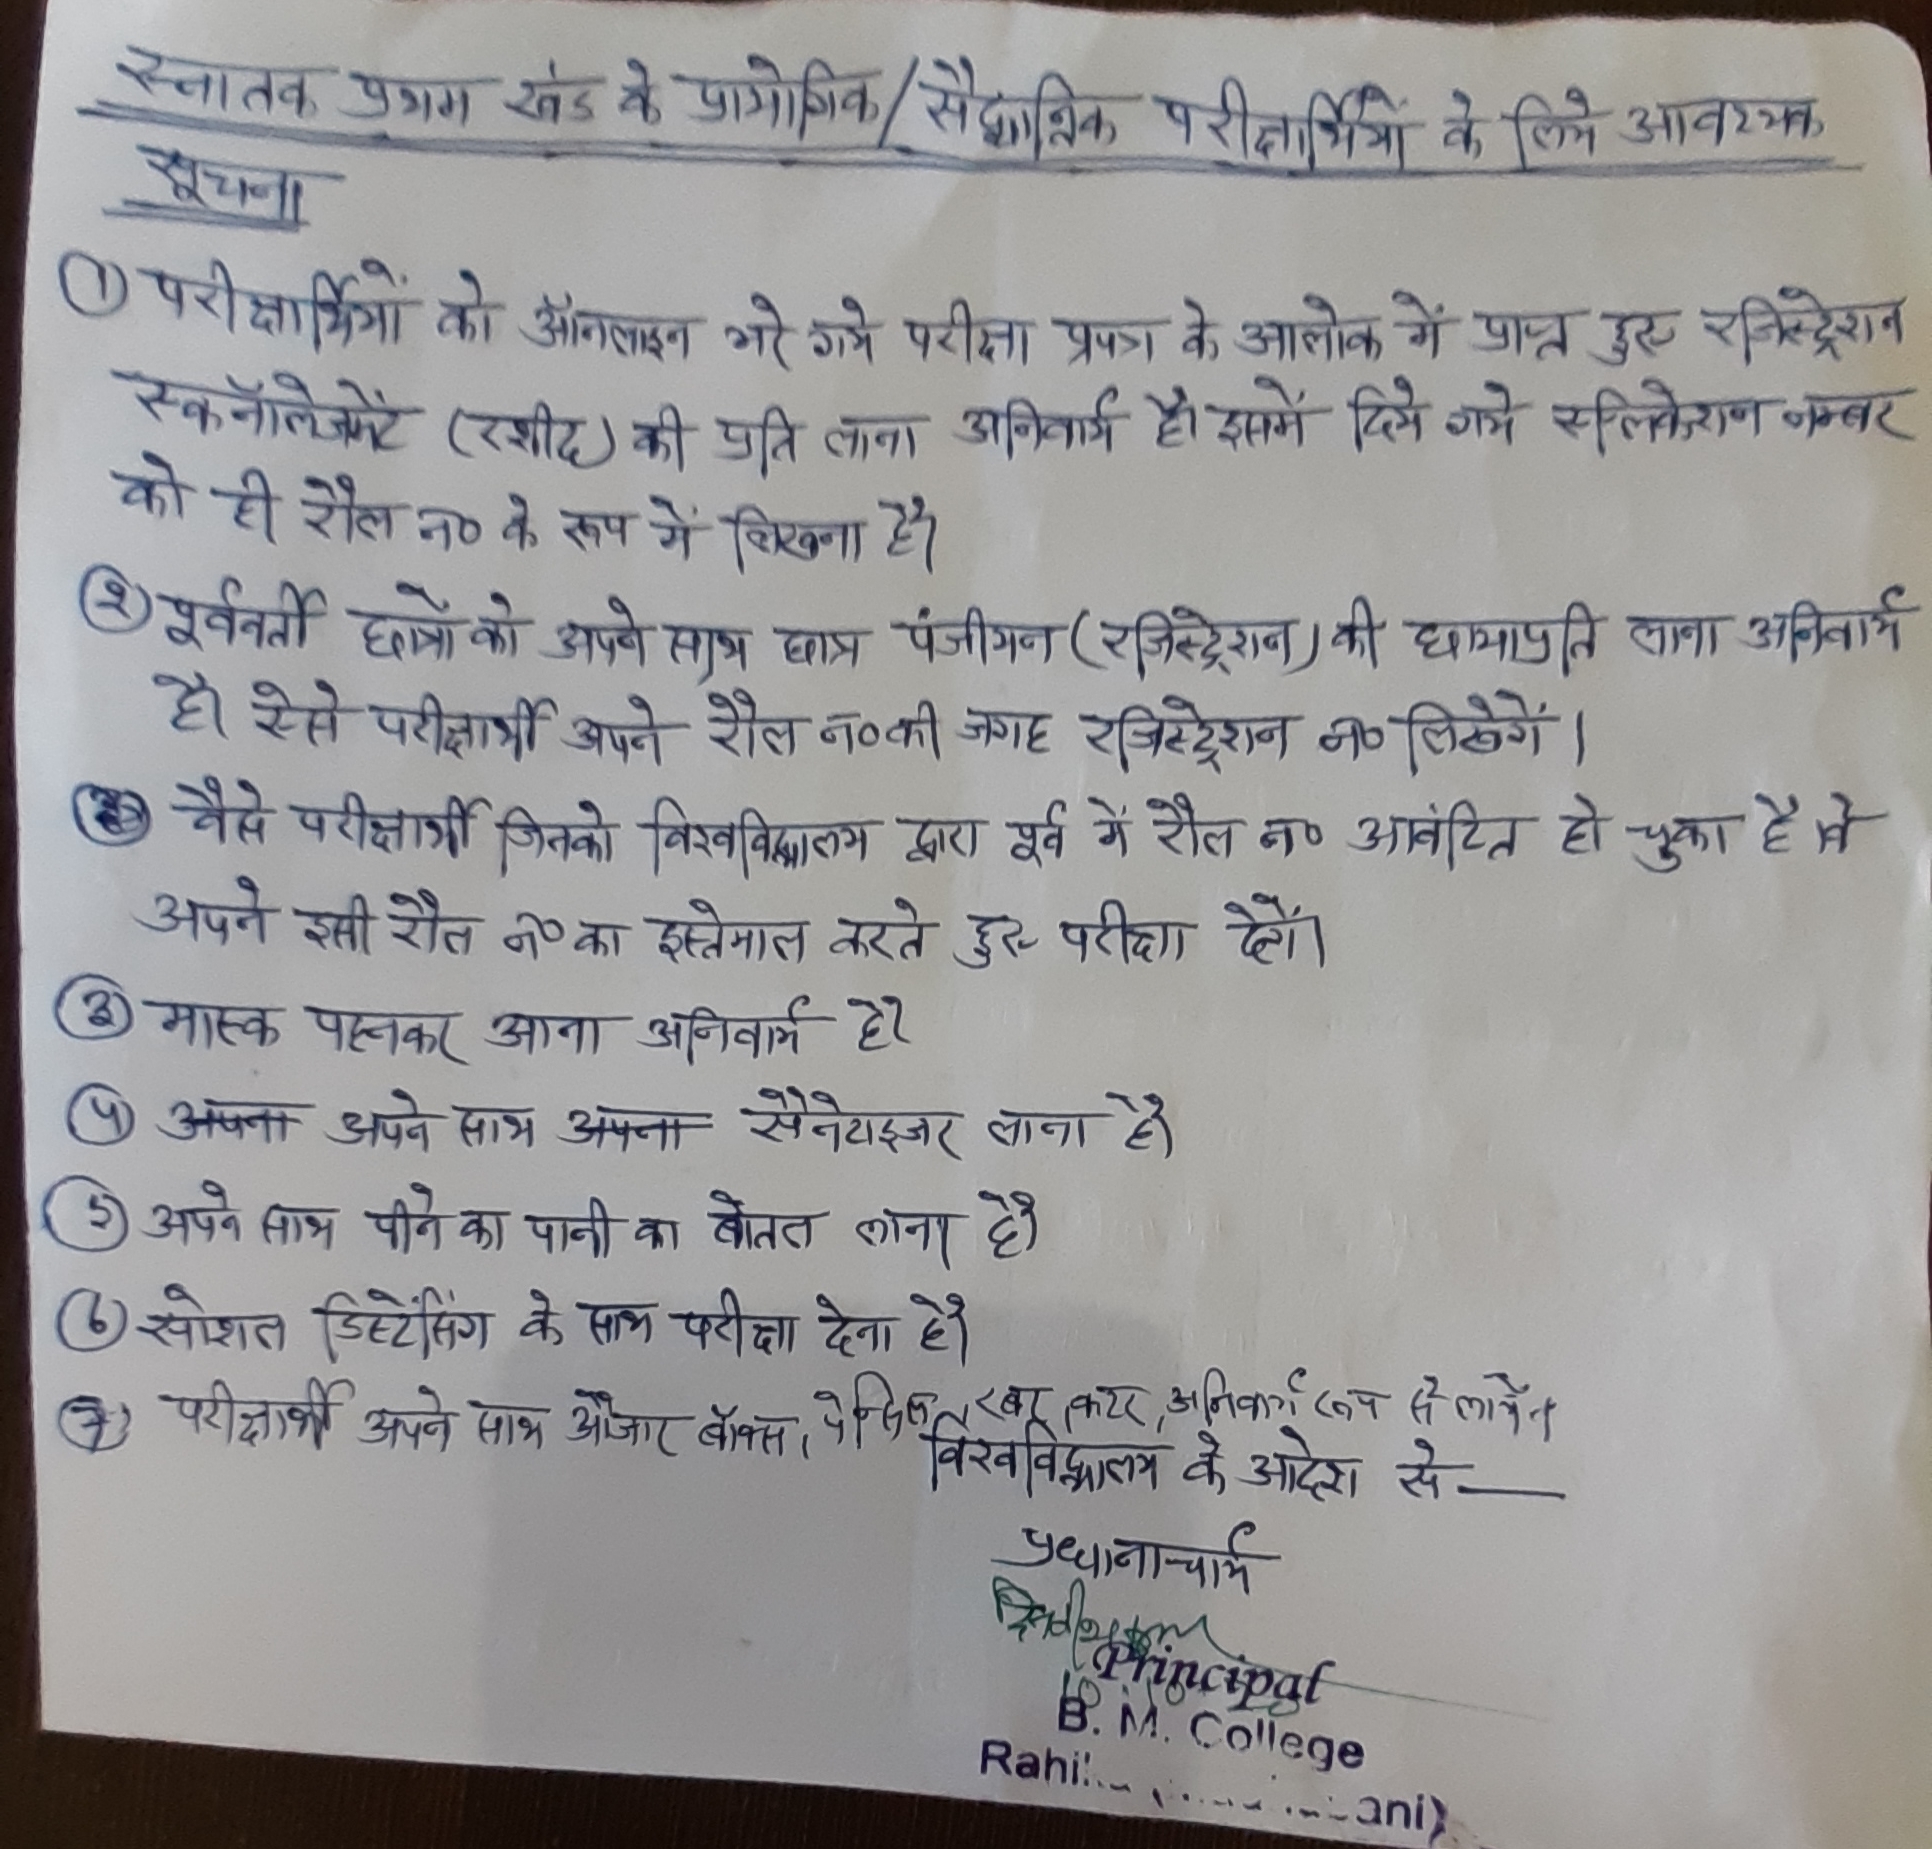 स्नातक प्रथम खंड के प्रायोगिक/सैद्धान्तिक परीक्षार्थियों के लिये आवश्यक
सूचना
① परीक्षार्थियों को ऑनलाइन भरे गये परीक्षा प्रपत्र के आलोक में प्राप्त हुए रजिस्ट्रेशन
एकनॉलेजमेंट (रशीद) की प्रति लाना अनिवार्य है। इसमें दिये गये एप्लिकेशन नम्बर
को ही रौल न० के रूप में लिखना है।
② पूर्ववर्ती छात्रों को अपने साथ छात्र पंजीयन (रजिस्ट्रेशन) की छायाप्रति लाना अनिवार्य
है। ऐसे परीक्षार्थी अपने रौल न० की जगह रजिस्ट्रेशन न० लिखेगें।
वैसे परीक्षार्थी जिनको विश्वविद्यालय द्वारा पूर्व में रौल न० आवंटित हो चुका है वे
अपने इसी रौल न० का इस्तेमाल करते हुए परीक्षा देगें।
③ मास्क पहनकर आना अनिवार्य है।
④ अपना अपने साथ अपना सैनेटाइजर लाना है।
⑤ अपने साथ पीने का पानी का बोतल लाना है।
⑥ सोशल डिस्टेंसिंग के साथ परीक्षा देना है।
⑦ परीक्षार्थी अपने साथ औजार बॉक्स, पेन्सिल, रबर, कटर, अनिवार्य रूप से लायें।
विश्वविद्यालय के आदेश से —
प्रधानाचार्य
Principal
B. M. College